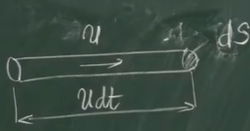 u dS
udt